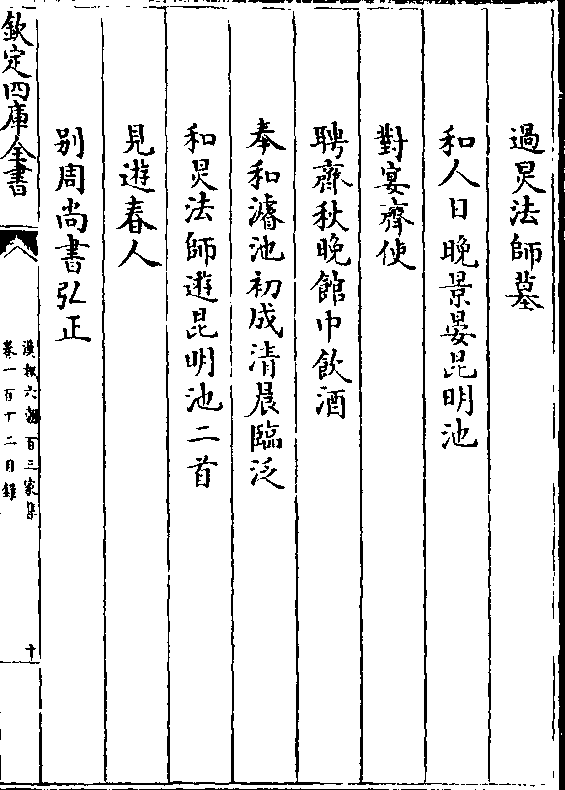 過炅法師墓
和人日晚景晏昆明池
對宴齊使
聘齊秋晚館中飲酒
奉和濬池初成清晨臨泛
和炅法師遊昆明池二首
見遊春人
别周尚書弘正
欽定四庫全書
漢魏六朝百三家集
卷一百十二目録
十